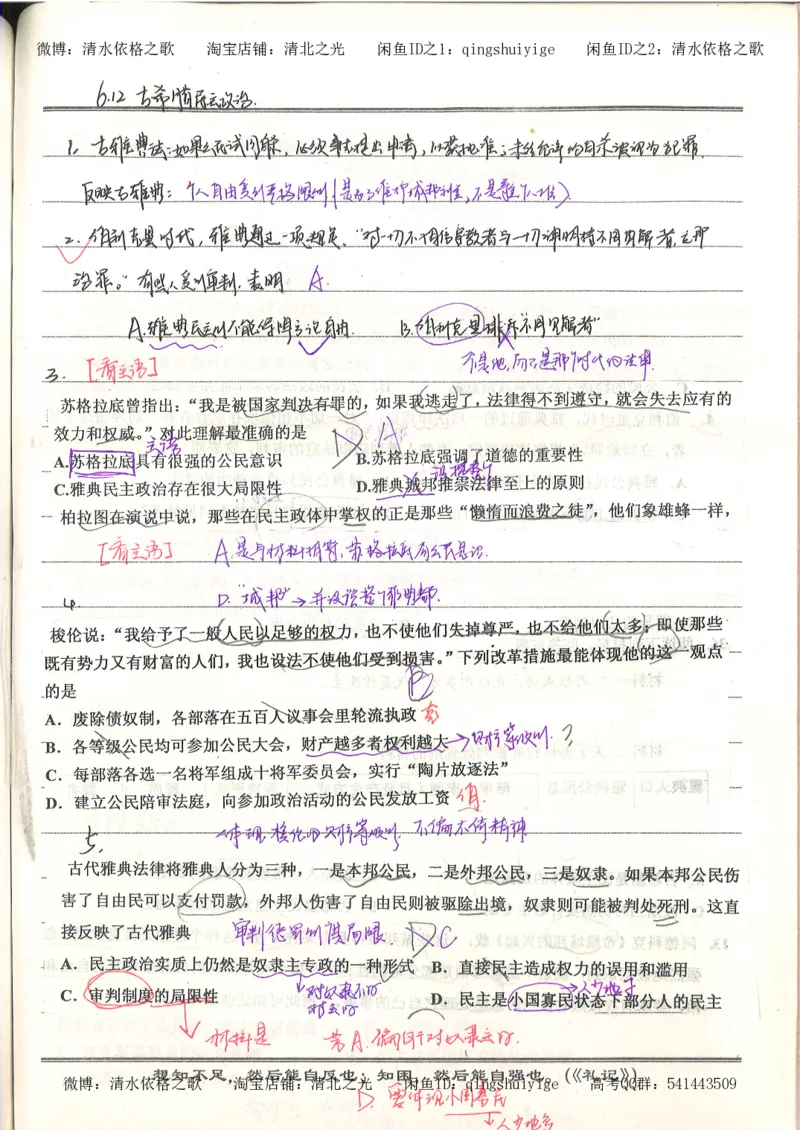 微博：清水依格之歌 淘宝店铺：清北之光 闲鱼ID之1：qingshuiyige 闲鱼ID之2：清水依格之歌
6.12 古希腊民主政治.
1. 古雅典法：如果应试自杀，必须事先提出申请，以获批准；未经允许的自杀被视为犯罪.
反映古雅典：个人自由受到严格限制（是为了维护城邦利益，不是尊重个人）
2. 伯利克里时代，雅典通过一项规定，“对一切不相信宗教者与一切神明持不同见解者，立即
治罪。”有些人受到审判.表明 A.
A.雅典民主则不能保障言论自由. B.伯利克里排斥不同见解者”
不是他，而是那个时代的法律
3. [看主语]
苏格拉底曾指出：“我是被国家判决有罪的，如果我逃走了，法律得不到遵守，就会失去应有的
效力和权威。”对此理解最准确的是 A
主语
A.苏格拉底具有很强的公民意识 B.苏格拉底强调了道德的重要性
C.雅典民主政治存在很大局限性 D.雅典城邦推崇法律至上的原则
柏拉图在演说中说，那些在民主政体中掌权的正是那些“懒惰而浪费之徒”，他们象雄蜂一样，
[看主语] A.是与材料相符，苏格拉底有公民意识.
D.“城邦”→并没说整个邦都.
4.
梭伦说：“我给予了一般人民以足够的权力，也不使他们失掉尊严，也不给他们太多；即使那些
既有势力又有财富的人们，我也设法不使他们受到损害。”下列改革措施最能体现他的这一观点
的是 B
A．废除债奴制，各部落在五百人议事会里轮流执政 克
B．各等级公民均可参加公民大会，财产越多者权利越大→财产等级制.？
C．每部落各选一名将军组成十将军委员会，实行“陶片放逐法”
D．建立公民陪审法庭，向参加政治活动的公民发放工资 伯.
体现梭伦的财产等级制，不偏不倚精神
5.
古代雅典法律将雅典人分为三种，一是本邦公民，二是外邦公民，三是奴隶。如果本邦公民伤
害了自由民可以支付罚款，外邦人伤害了自由民则被驱除出境，奴隶则可能被判处死刑。这直
接反映了古代雅典 C
A．民主政治实质上仍然是奴隶主专政的一种形式 B．直接民主造成权力的误用和滥用
C．审判制度的局限性 D．民主是小国寡民状态下部分人的民主
材料是
D.要体现小国寡民
想知不足，然后能自反也；知困，然后能自强也。（《礼记》）
微博：清水依格之歌 淘宝店铺：清北之光 闲鱼ID：qingshuiyige 高考QQ群：541443509